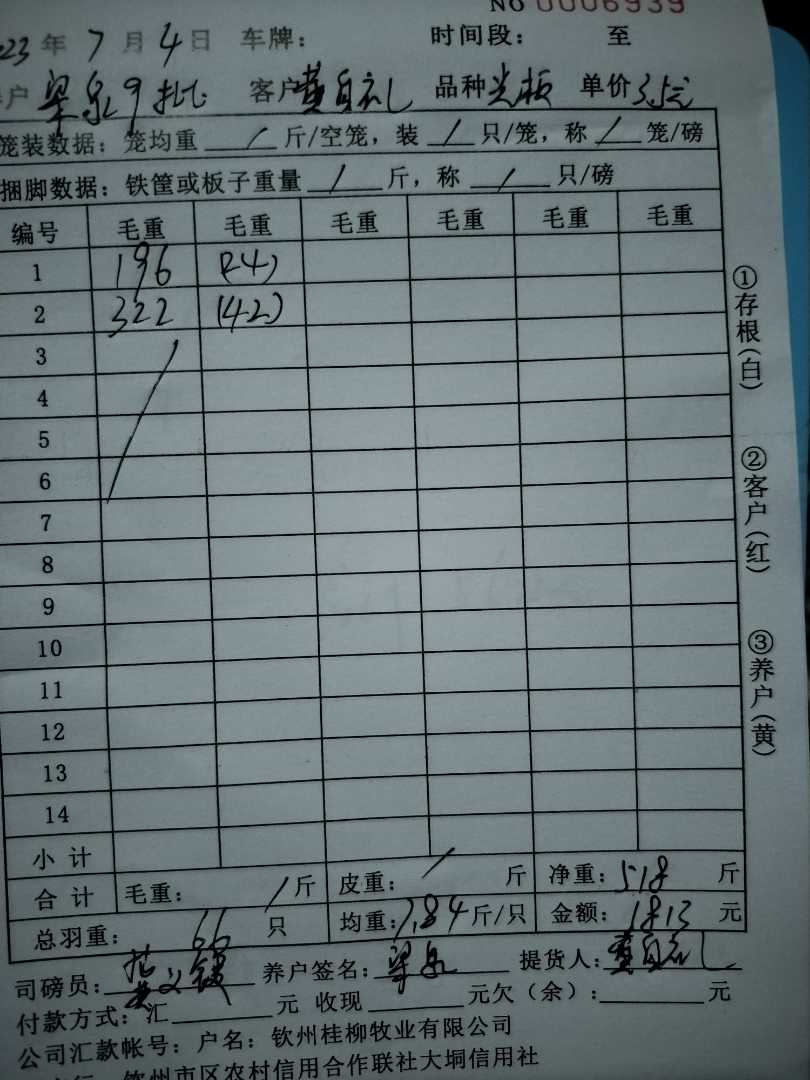 NO 0006939
23年7月4日 车牌： 时间段： 至
户 梁泉9批 客户 黄自礼 品种 光板 单价 3.5元
笼装数据：笼均重 / 斤/空笼，装 / 只/笼，称 / 笼/磅
捆脚数据：铁筐或板子重量 / 斤，称 / 只/磅
编号 毛重 毛重 毛重 毛重 毛重 毛重
1 196 (24)
2 322 (42)
3
4
5
6
7
8
9
10
11
12
13
14
小计
合计 毛重： / 斤 皮重： / 斤 净重：518 斤
总羽重： 66 只 均重：7.84 斤/只 金额：1813 元
司磅员： 养户签名：梁泉 提货人：黄自礼
付款方式：汇 元 收现 元欠（余）： 元
公司汇款帐号：户名：钦州桂柳牧业有限公司
钦州市区农村信用合作联社大垌信用社
①存根(白)
②客户(红)
③养户(黄)